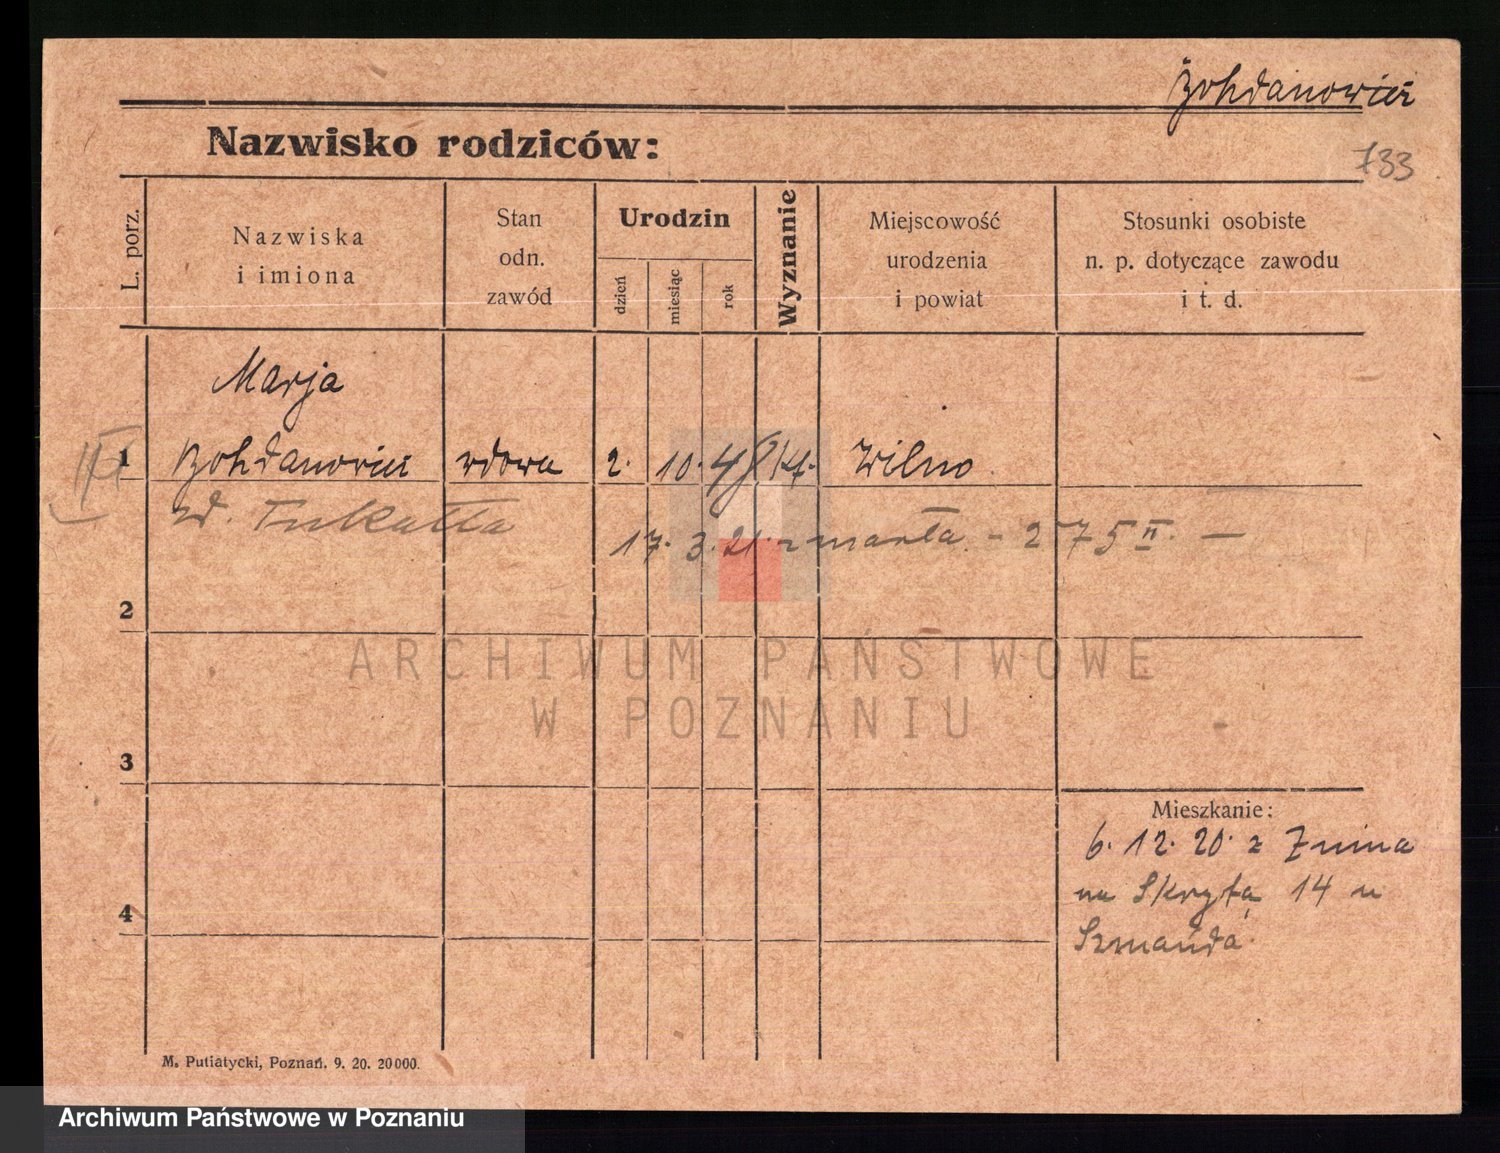 Bohdanowicz
Nazwisko rodziców:
733
L. porz.
Nazwiska
i imiona
Stan
odn.
zawód
Urodzin
dzień
miesiąc
rok
Wyznanie
Miejscowość
urodzenia
i powiat
Stosunki osobiste
n. p. dotyczące zawodu
i t. d.
Marja
1 Bohdanowicz wdowa 2. 10. 48 kat. Wilno
zd. Tukałła
17. 3. 21. zmarła - 275 II. —
2
3
4
Mieszkanie:
6. 12. 20. z Żnina
na Skrytą 14 u
Szmańda
M. Putiatycki, Poznań. 9. 20. 20000.
ARCHIWUM PAŃSTWOWE
W POZNANIU
Archiwum Państwowe w Poznaniu